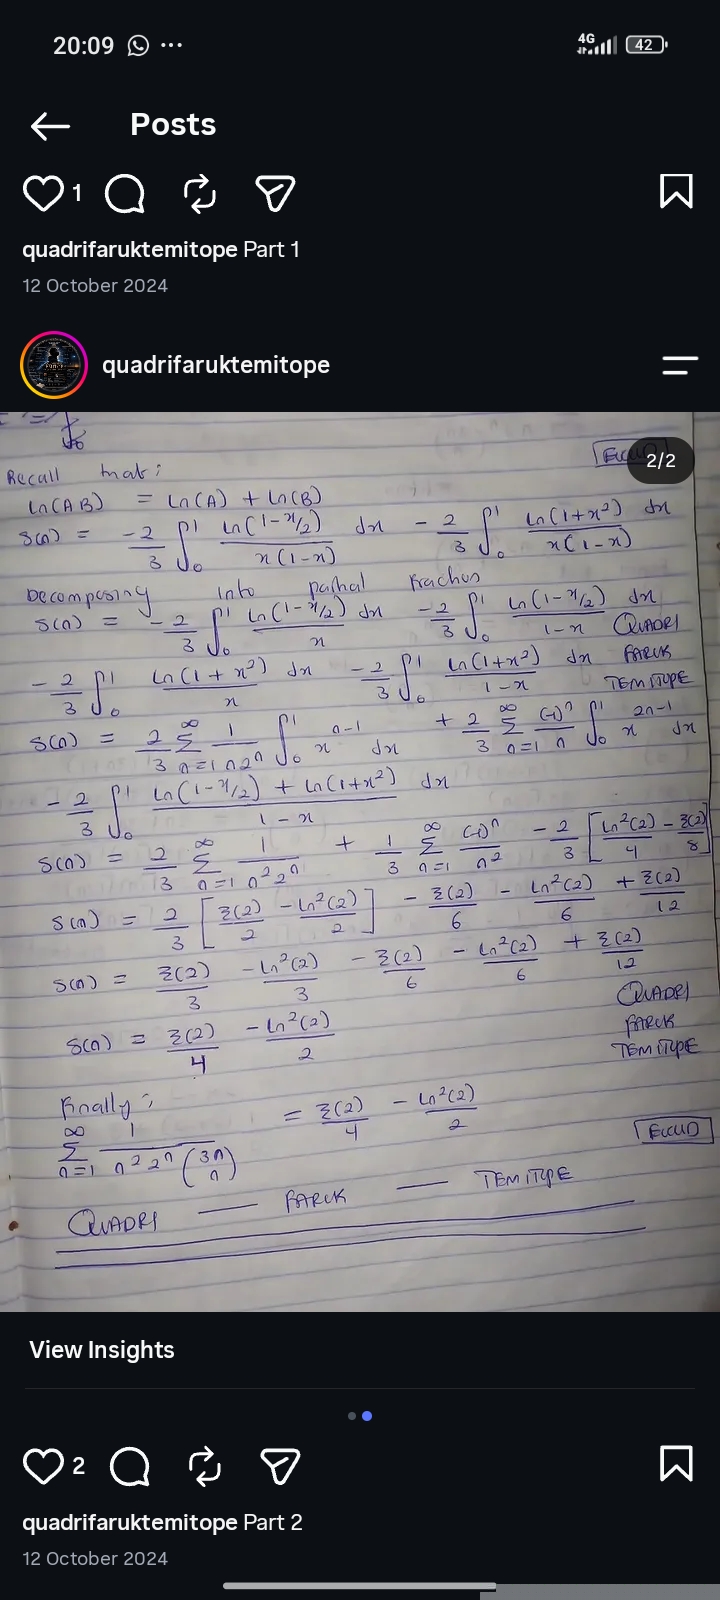 20:09 ...
4G 42
Posts
1
quadrifaruktemitope Part 1
12 October 2024
quadrifaruktemitope
2/2
Recall that;
ln(AB) = ln(A) + ln(B)
S(n) = -2/3 ∫₀¹ ln(1-x/2)/x(1-x) dx - 2/3 ∫₀¹ ln(1+x²)/x(1-x) dx
Decomposing into partial fractions
S(n) = -2/3 ∫₀¹ ln(1-x/2)/x dx -2/3 ∫₀¹ ln(1-x/2)/1-x dx
QUADRI
-2/3 ∫₀¹ ln(1+x²)/x dx -2/3 ∫₀¹ ln(1+x²)/1-x dx
FARUK
TEMITOPE
S(n) = 2/3 Σ_{n=1}^∞ 1/n2ⁿ ∫₀¹ xⁿ⁻¹ dx + 2/3 Σ_{n=1}^∞ (-1)ⁿ/n ∫₀¹ x²ⁿ⁻¹ dx
-2/3 ∫₀¹ ln(1-x/2) + ln(1+x²)/1-x dx
S(n) = 2/3 Σ_{n=1}^∞ 1/n²2ⁿ + 1/3 Σ_{n=1}^∞ (-1)ⁿ/n² -2/3 [ln²(2)/4 - ξ(2)/8]
S(n) = 2/3 [ξ(2)/2 - ln²(2)/2] - ξ(2)/6 - ln²(2)/6 + ξ(2)/12
S(n) = ξ(2)/3 - ln²(2)/3 - ξ(2)/6 - ln²(2)/6 + ξ(2)/12
QUADRI
S(n) = ξ(2)/4 - ln²(2)/2
FARUK
TEMITOPE
Finally;
Σ_{n=1}^∞ 1/n²2ⁿ(3n n) = ξ(2)/4 - ln²(2)/2
EUCLID
QUADRI — FARUK — TEMITOPE
View Insights
2
quadrifaruktemitope Part 2
12 October 2024